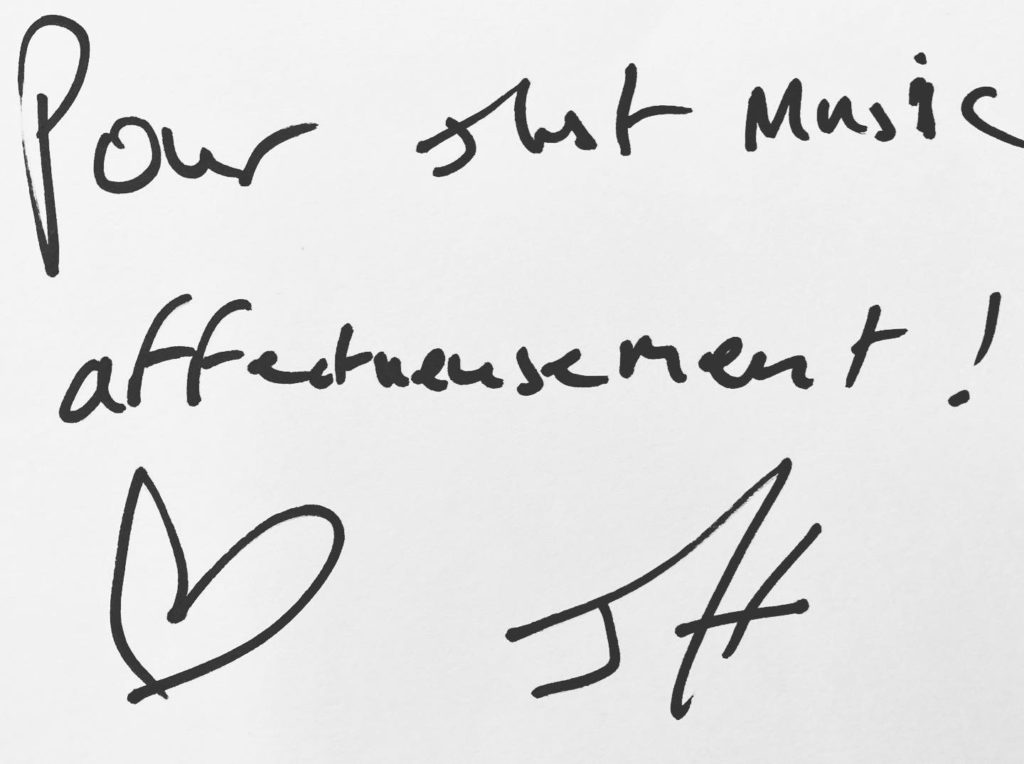 Pour Just Music
affectueusement !
JH